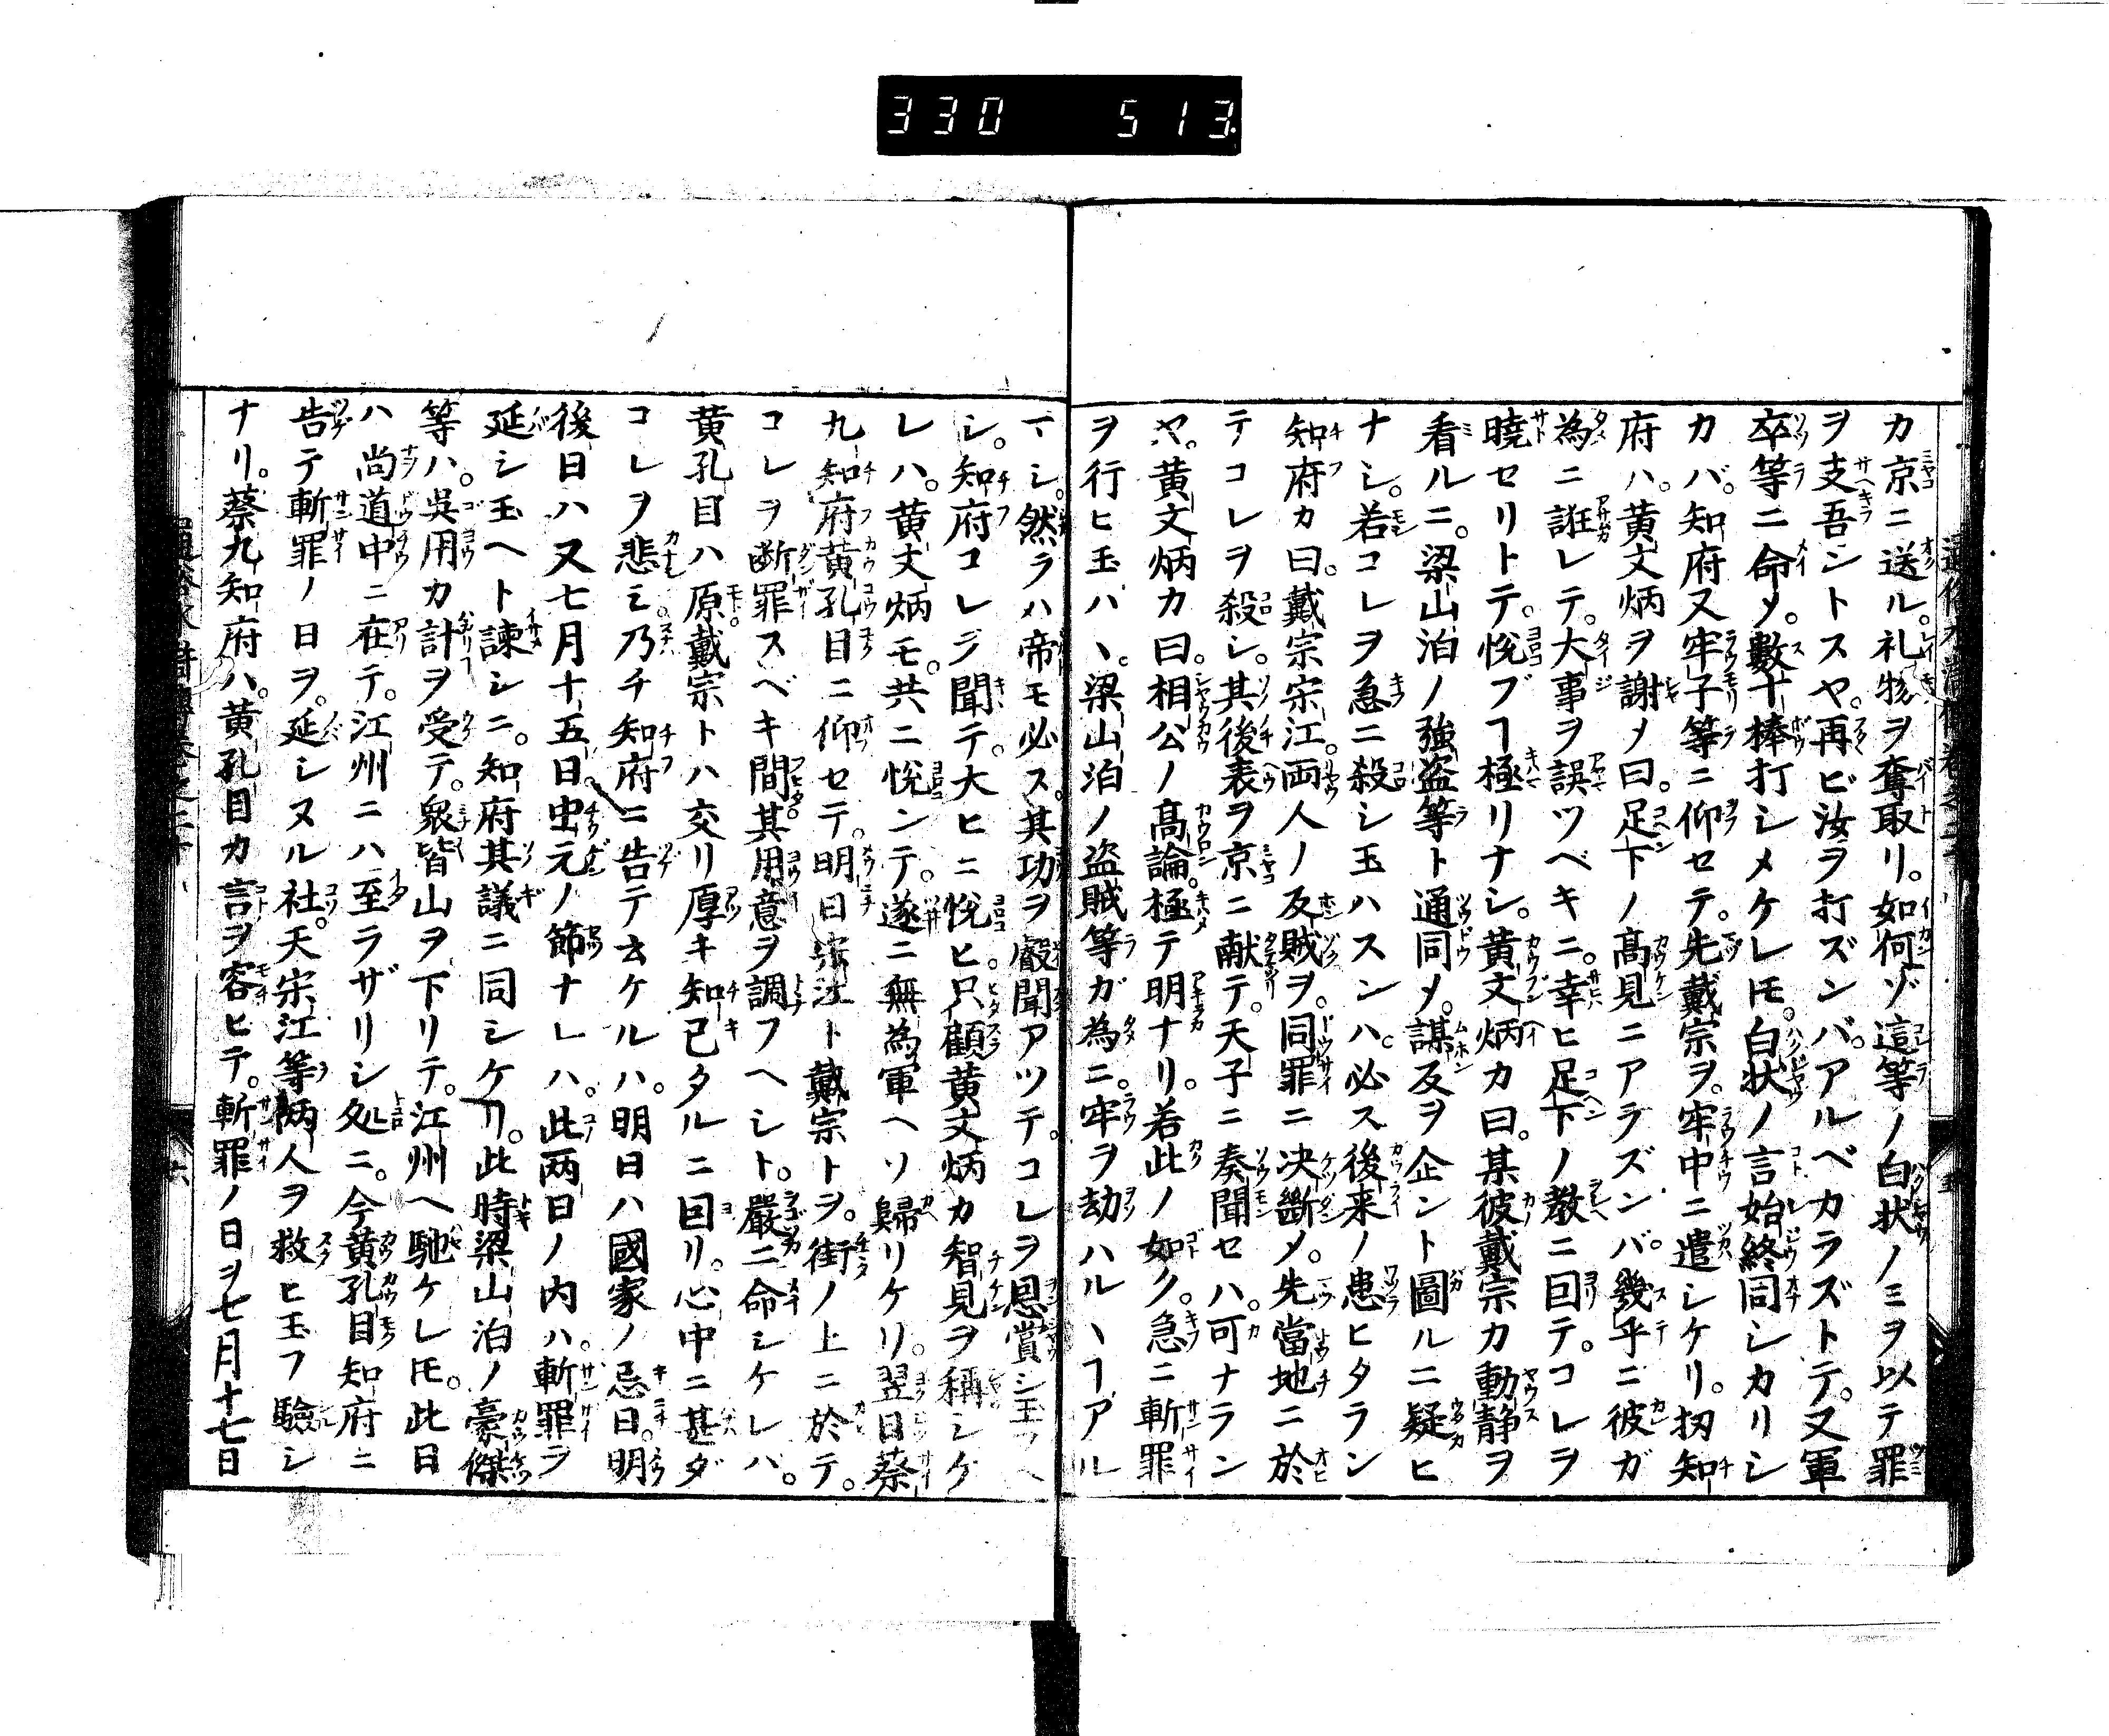 330 513.
カ京ニ送ル。礼物ヲ奪取リ。如何ゾ這等ノ白状ノミヲ以テ罪
ヲ支吾ントスヤ。再ビ汝ヲ打ズンバ。アルベカラズトテ。又軍
卒等ニ命〆。數十棒打シメケレ𪜈。白状ノ言始終同シカリシ
カバ。知府又牢子等ニ仰セテ。先戴宗ヲ。牢中ニ遣シケリ。扨知
府ハ。黄文炳ヲ謝〆曰。足下ノ髙見ニアラズンバ。幾乎ニ彼ガ
為ニ誑レテ。大事ヲ誤ツベキニ。幸ヒ足下ノ教ニ回テ。コレヲ
曉セリトテ。悦ブヿ極リナシ。黄文炳カ曰。某彼戴宗カ動静ヲ
看ルニ。梁山泊ノ強盗等ト通同〆。謀反ヲ企ント圖ルニ疑ヒ
ナシ。若コレヲ急ニ殺シ玉ハスンハ。必ス後来ノ患ヒタラン
知府カ曰。戴宗宋江。両人ノ反賊ヲ。同罪ニ决斷〆。先當地ニ於
テコレヲ殺シ。其後表ヲ京ニ献テ。天子ニ奏聞セハ。可ナラン
ヤ。黄文炳カ曰。相公ノ髙論。極テ明ナリ。若此ノ如ク。急ニ斬罪
ヲ行ヒ玉ハヽ。梁山泊ノ盗賊等ガ為ニ。牢ヲ劫ハルヽヿアル
マシ。然ラハ帝モ必ス。其功ヲ叡聞アツテ。コレヲ恩賞シ玉フヘ
シ。知府コレヲ聞テ。大ヒニ悦ヒ。只顧黄文炳カ智見ヲ稱シケ
レハ。黄文炳モ。共ニ悦ンテ。遂ニ無為軍ヘソ歸リケリ。翌日蔡
九知府黄孔目ニ仰セテ。明日宋江ト戴宗トヲ。街ノ上ニ於テ。
コレヲ断罪スベキ間。其用意ヲ調フヘシト。嚴ニ命シケレバ。
黄孔目ハ原戴宗トハ交リ厚キ知已タルニ回リ。心中ニ甚ダ
コレヲ悲ミ乃チ知府ニ告テ云ケルハ。明日ハ國家ノ忌日。明
後日ハ又七月十五日。中元ノ節ナレハ。此両日ノ内ハ。斬罪ヲ
延シ玉ヘト諫シニ。知府其議ニ同シケリ。此時梁山泊ノ豪傑
等ハ。呉用カ計ヲ受テ。衆皆山ヲ下リテ。江州ヘ馳ケレ𪜈。此日
ハ尚道中ニ在テ。江州ニハ至ラザリシ処ニ。今黄孔目知府ニ
告テ斬罪ノ日ヲ。延シヌル社。天宋江等両人ヲ救ヒ玉フ驗シ
ナリ。蔡九知府ハ。黄孔目カ言ヲ容ヒテ。斬罪ノ日ヲ七月十七日